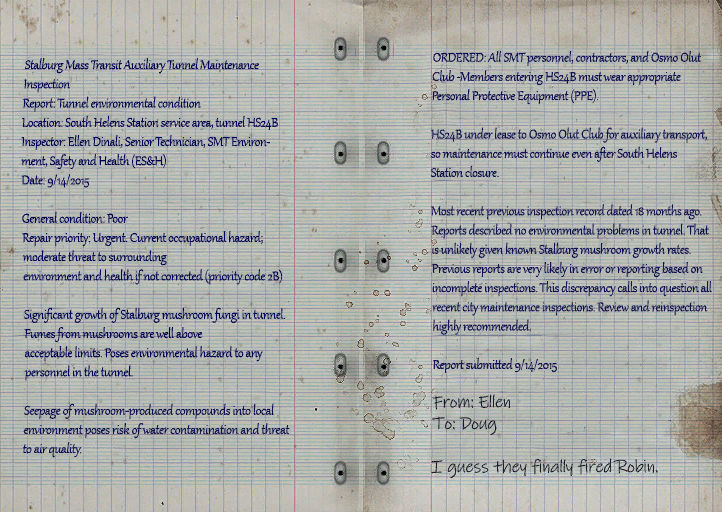 Stalburg Mass Transit Auxiliary Tunnel Maintenance
Inspection
Report: Tunnel environmental condition
Location: South Helens Station service area, tunnel HS24B
Inspector: Ellen Dinali, Senior Technician, SMT Environ-
ment, Safety and Health (ES&H)
Date: 9/14/2015
General condition: Poor
Repair priority: Urgent. Current occupational hazard;
moderate threat to surrounding
environment and health if not corrected (priority code 2B)
Significant growth of Stalburg mushroom fungi in tunnel.
Fumes from mushrooms are well above
acceptable limits. Poses environmental hazard to any
personnel in the tunnel.
Seepage of mushroom-produced compounds into local
environment poses risk of water contamination and threat
to air quality.
ORDERED: All SMT personnel, contractors, and Osmo Olut
Club -Members entering HS24B must wear appropriate
Personal Protective Equipment (PPE).
HS24B under lease to Osmo Olut Club for auxiliary transport,
so maintenance must continue even after South Helens
Station closure.
Most recent previous inspection record dated 18 months ago.
Reports described no environmental problems in tunnel. That
is unlikely given known Stalburg mushroom growth rates.
Previous reports are very likely in error or reporting based on
incomplete inspections. This discrepancy calls into question all
recent city maintenance inspections. Review and reinspection
highly recommended.
Report submitted 9/14/2015
From: Ellen
To: Doug
I guess they finally fired Robin.